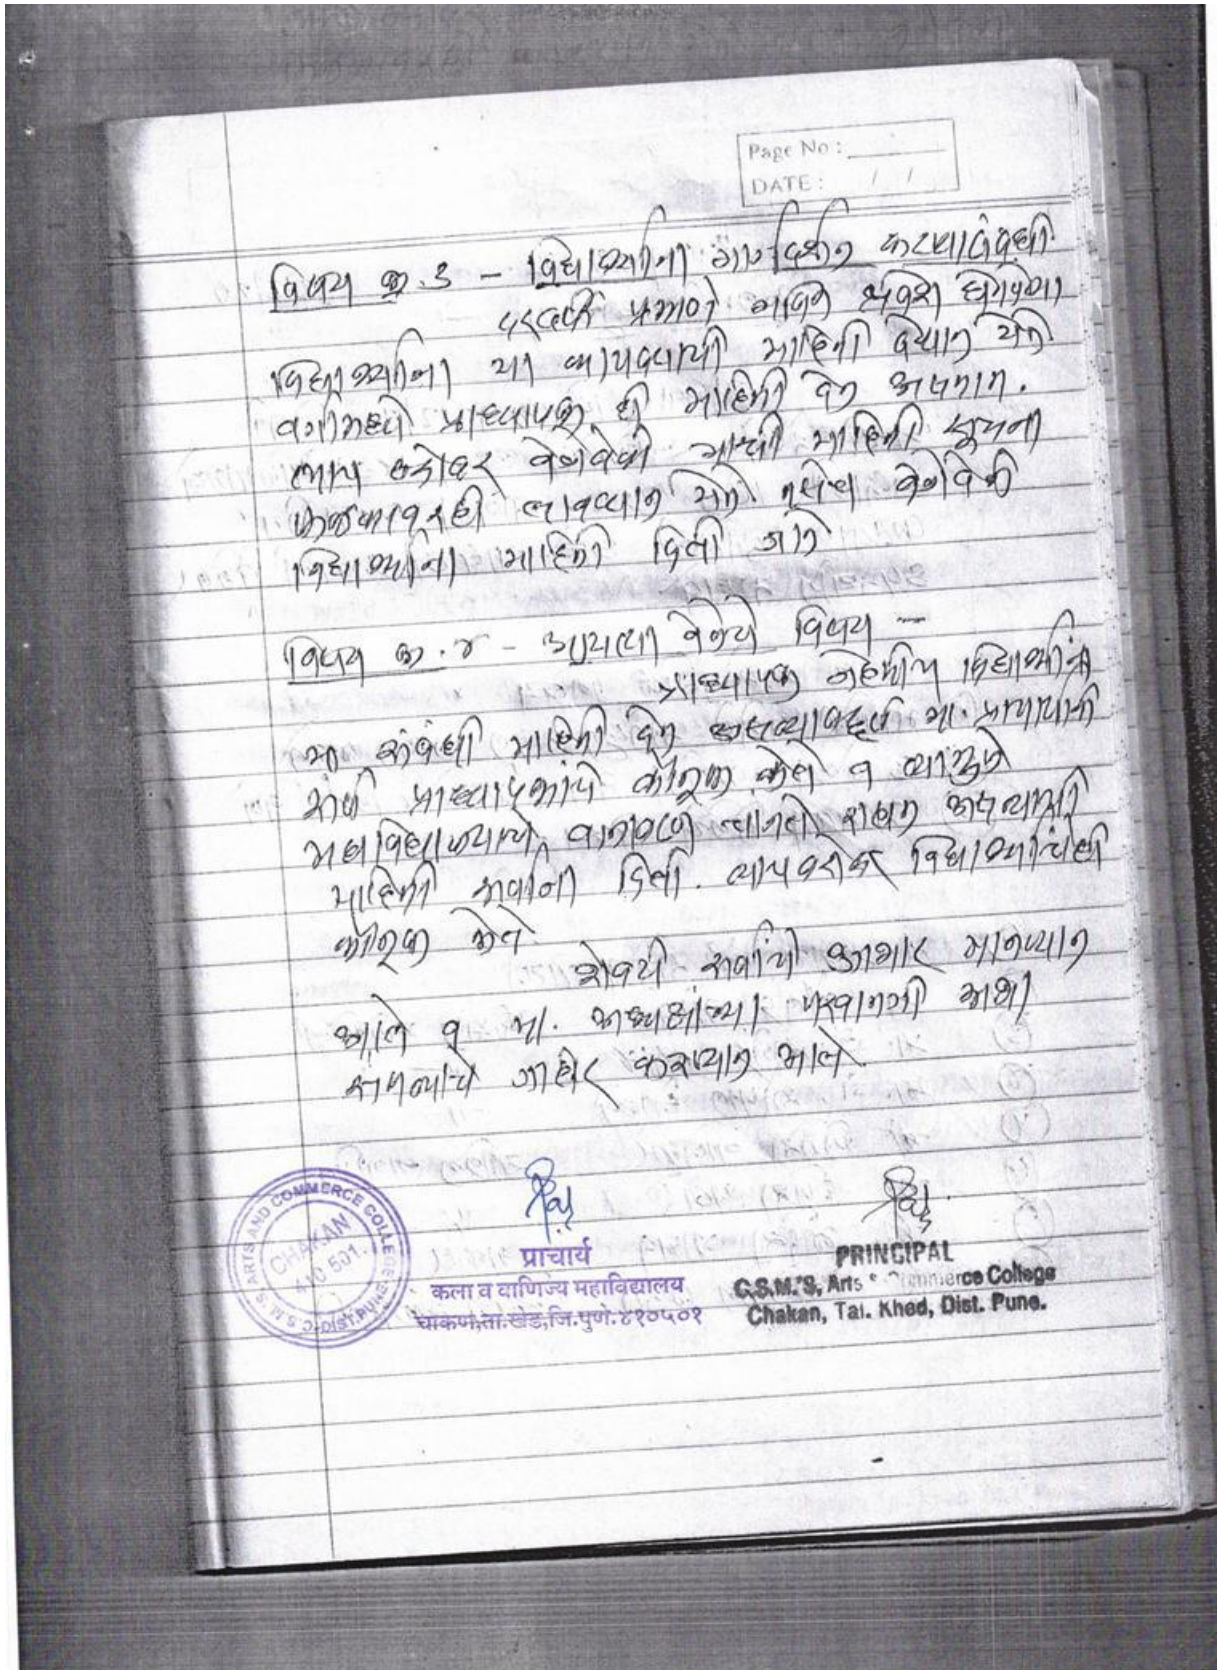 Page No :
DATE : / /
विषय क्र. ३ - विद्यार्थ्यांना मार्गदर्शन करण्यासंबंधी
प्रमाणे नविन प्रवेश घेणाऱ्या
विद्यार्थ्यांना या कायद्याची माहिती देण्यात येते
वर्गामध्ये प्राध्यापक ही माहिती देत असतात.
त्याच बरोबर वेळोवेळी याची माहिती सूचना
फलकावरही लावण्यात येते तसेच वेळोवेळी
विद्यार्थ्यांना माहिती दिली जाते
विषय क्र. ४ - आयत्या वेळेचे विषय -
प्राध्यापक नेहमीच विद्यार्थ्यांना
या संबंधी माहिती देत असल्याबद्दल मा. प्राचार्यांनी
सर्व प्राध्यापकांचे कौतुक केले व त्यामुळे
महाविद्यालयाचे वातावरण चांगले राहत असल्याची
माहिती सर्वांना दिली. त्याचबरोबर विद्यार्थ्यांचेही
कौतुक केले
शेवटी सर्वांचे आभार मानण्यात
आले व मा. अध्यक्षांच्या परवानगी सभा
संपल्याचे जाहीर करण्यात आले.
ARTS AND COMMERCE COLLEGE
CHAKAN
410 501.
C.S.M.'S. DIST. PUNE
प्राचार्य
कला व वाणिज्य महाविद्यालय
चाकण, ता. खेड, जि. पुणे. ४१०५०१
PRINCIPAL
C.S.M.'S, Arts & Commerce College
Chakan, Tal. Khed, Dist. Pune.